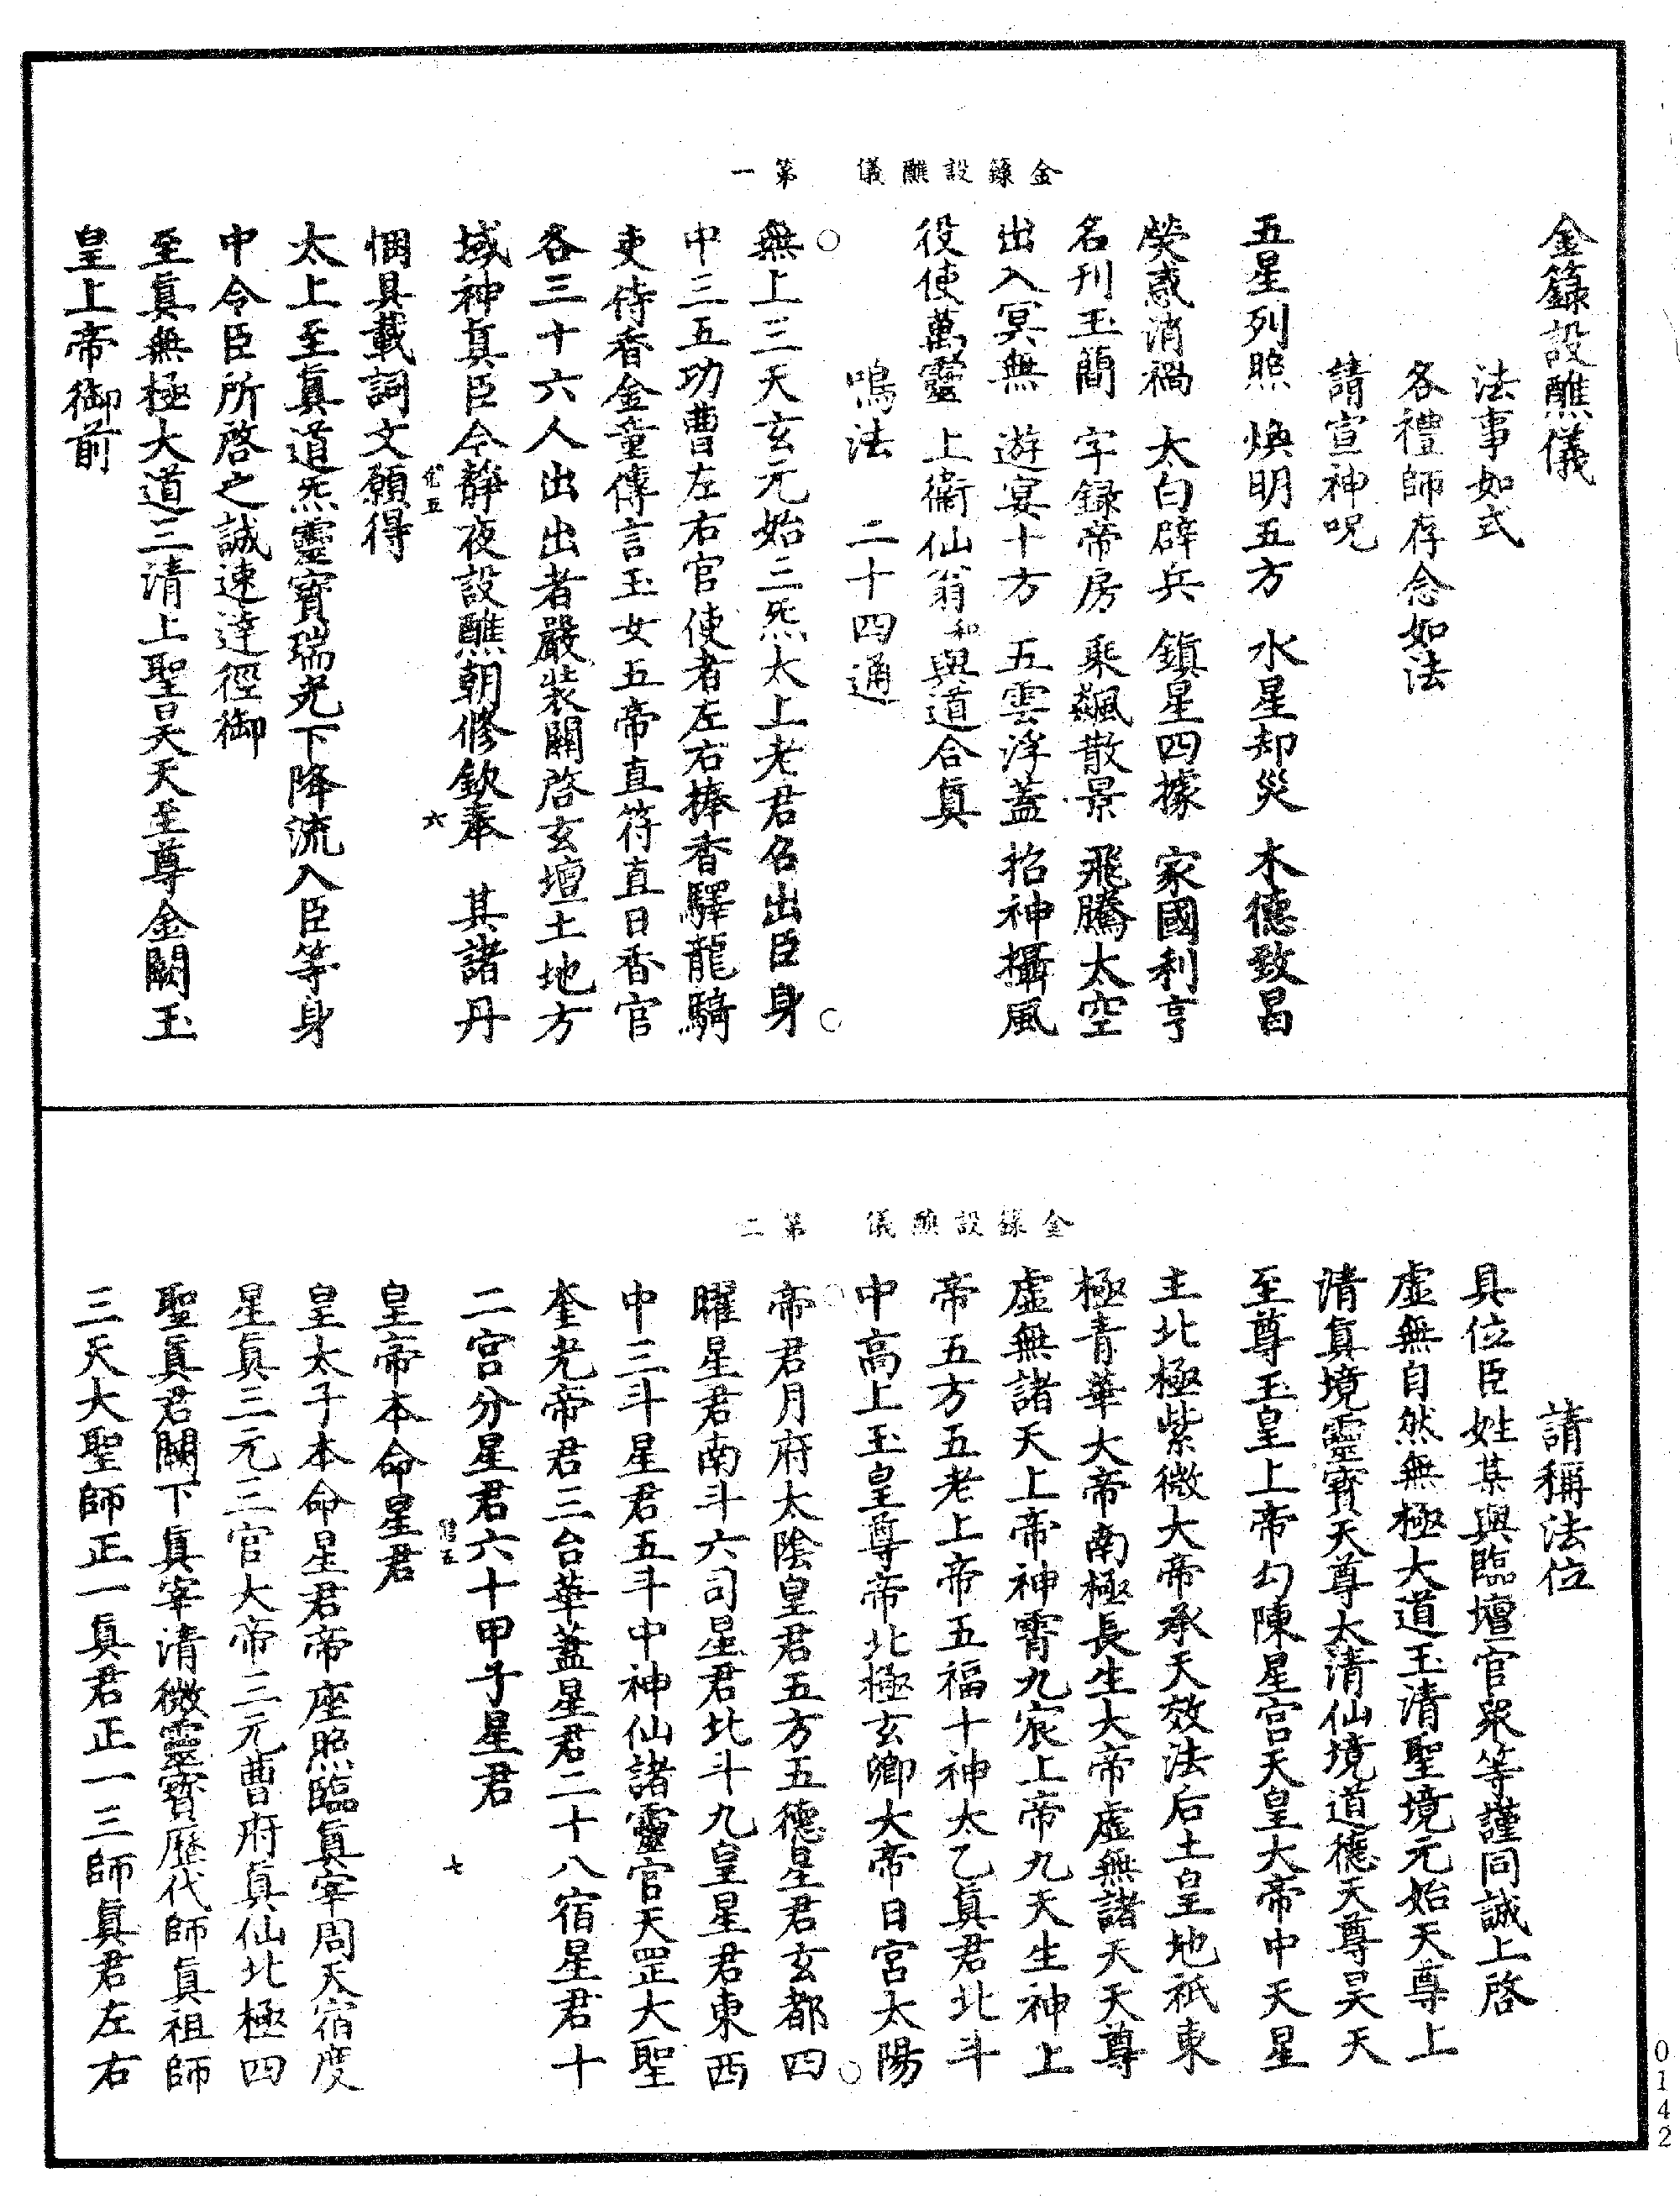 金籙設醮儀
法事如式
各禮師存念如法
請宣神呪
五星列照 煥明五方 水星却災 木德致昌
熒惑消禍 太白辟兵 鎮星四據 家國利亨
名刊玉簡 字錄帝房 乘飆散景 飛騰太空
出入冥無 遊宴十方 五雲浮蓋 招神攝風
役使萬靈 上衛仙翁 和 與道合眞
鳴法 二十四通
無上三天玄元始三炁太上老君召出臣身
中三五功曹左右官使者左右捧香驛龍騎
吏侍香金童傳言玉女五帝直符直日香官
各三十六人出出者嚴裝關啓玄壇土地方
域神眞臣今靜夜設醮朝修欽奉 其諸丹
悃具載詞文願得
太上至眞道炁靈寶瑞光下降流入臣等身
中令臣所啓之誠速達徑御
至眞無極大道三清上聖昊天至尊金闕玉
皇上帝御前
金籙設醮儀 第一
六
請稱法位
具位臣姓某與臨壇官衆等謹同誠上啓
虛無自然無極大道玉清聖境元始天尊上
清眞境靈寶天尊太清仙境道德天尊昊天
至尊玉皇上帝勾陳星宮天皇大帝中天星
主北極紫微大帝承天效法后土皇地祇東
極青華大帝南極長生大帝虛無諸天天尊
虛無諸天上帝神霄九宸上帝九天生神上
帝五方五老上帝五福十神太乙眞君北斗
中高上玉皇尊帝北極玄卿大帝日宮太陽
帝君月府太陰皇君五方五德星君玄都四
曜星君南斗六司星君北斗九皇星君東西
中三斗星君五斗中神仙諸靈官天罡大聖
奎光帝君三台華蓋星君二十八宿星君十
二宮分星君六十甲子星君
皇帝本命星君
皇太子本命星君帝座照臨眞宰周天宿度
星眞三元三官大帝三元曹府眞仙北極四
聖眞君闕下眞宰清微靈寶歷代師眞祖師
三天大聖師正一眞君正一三師眞君左右
金籙設醮儀 第二
七
0142